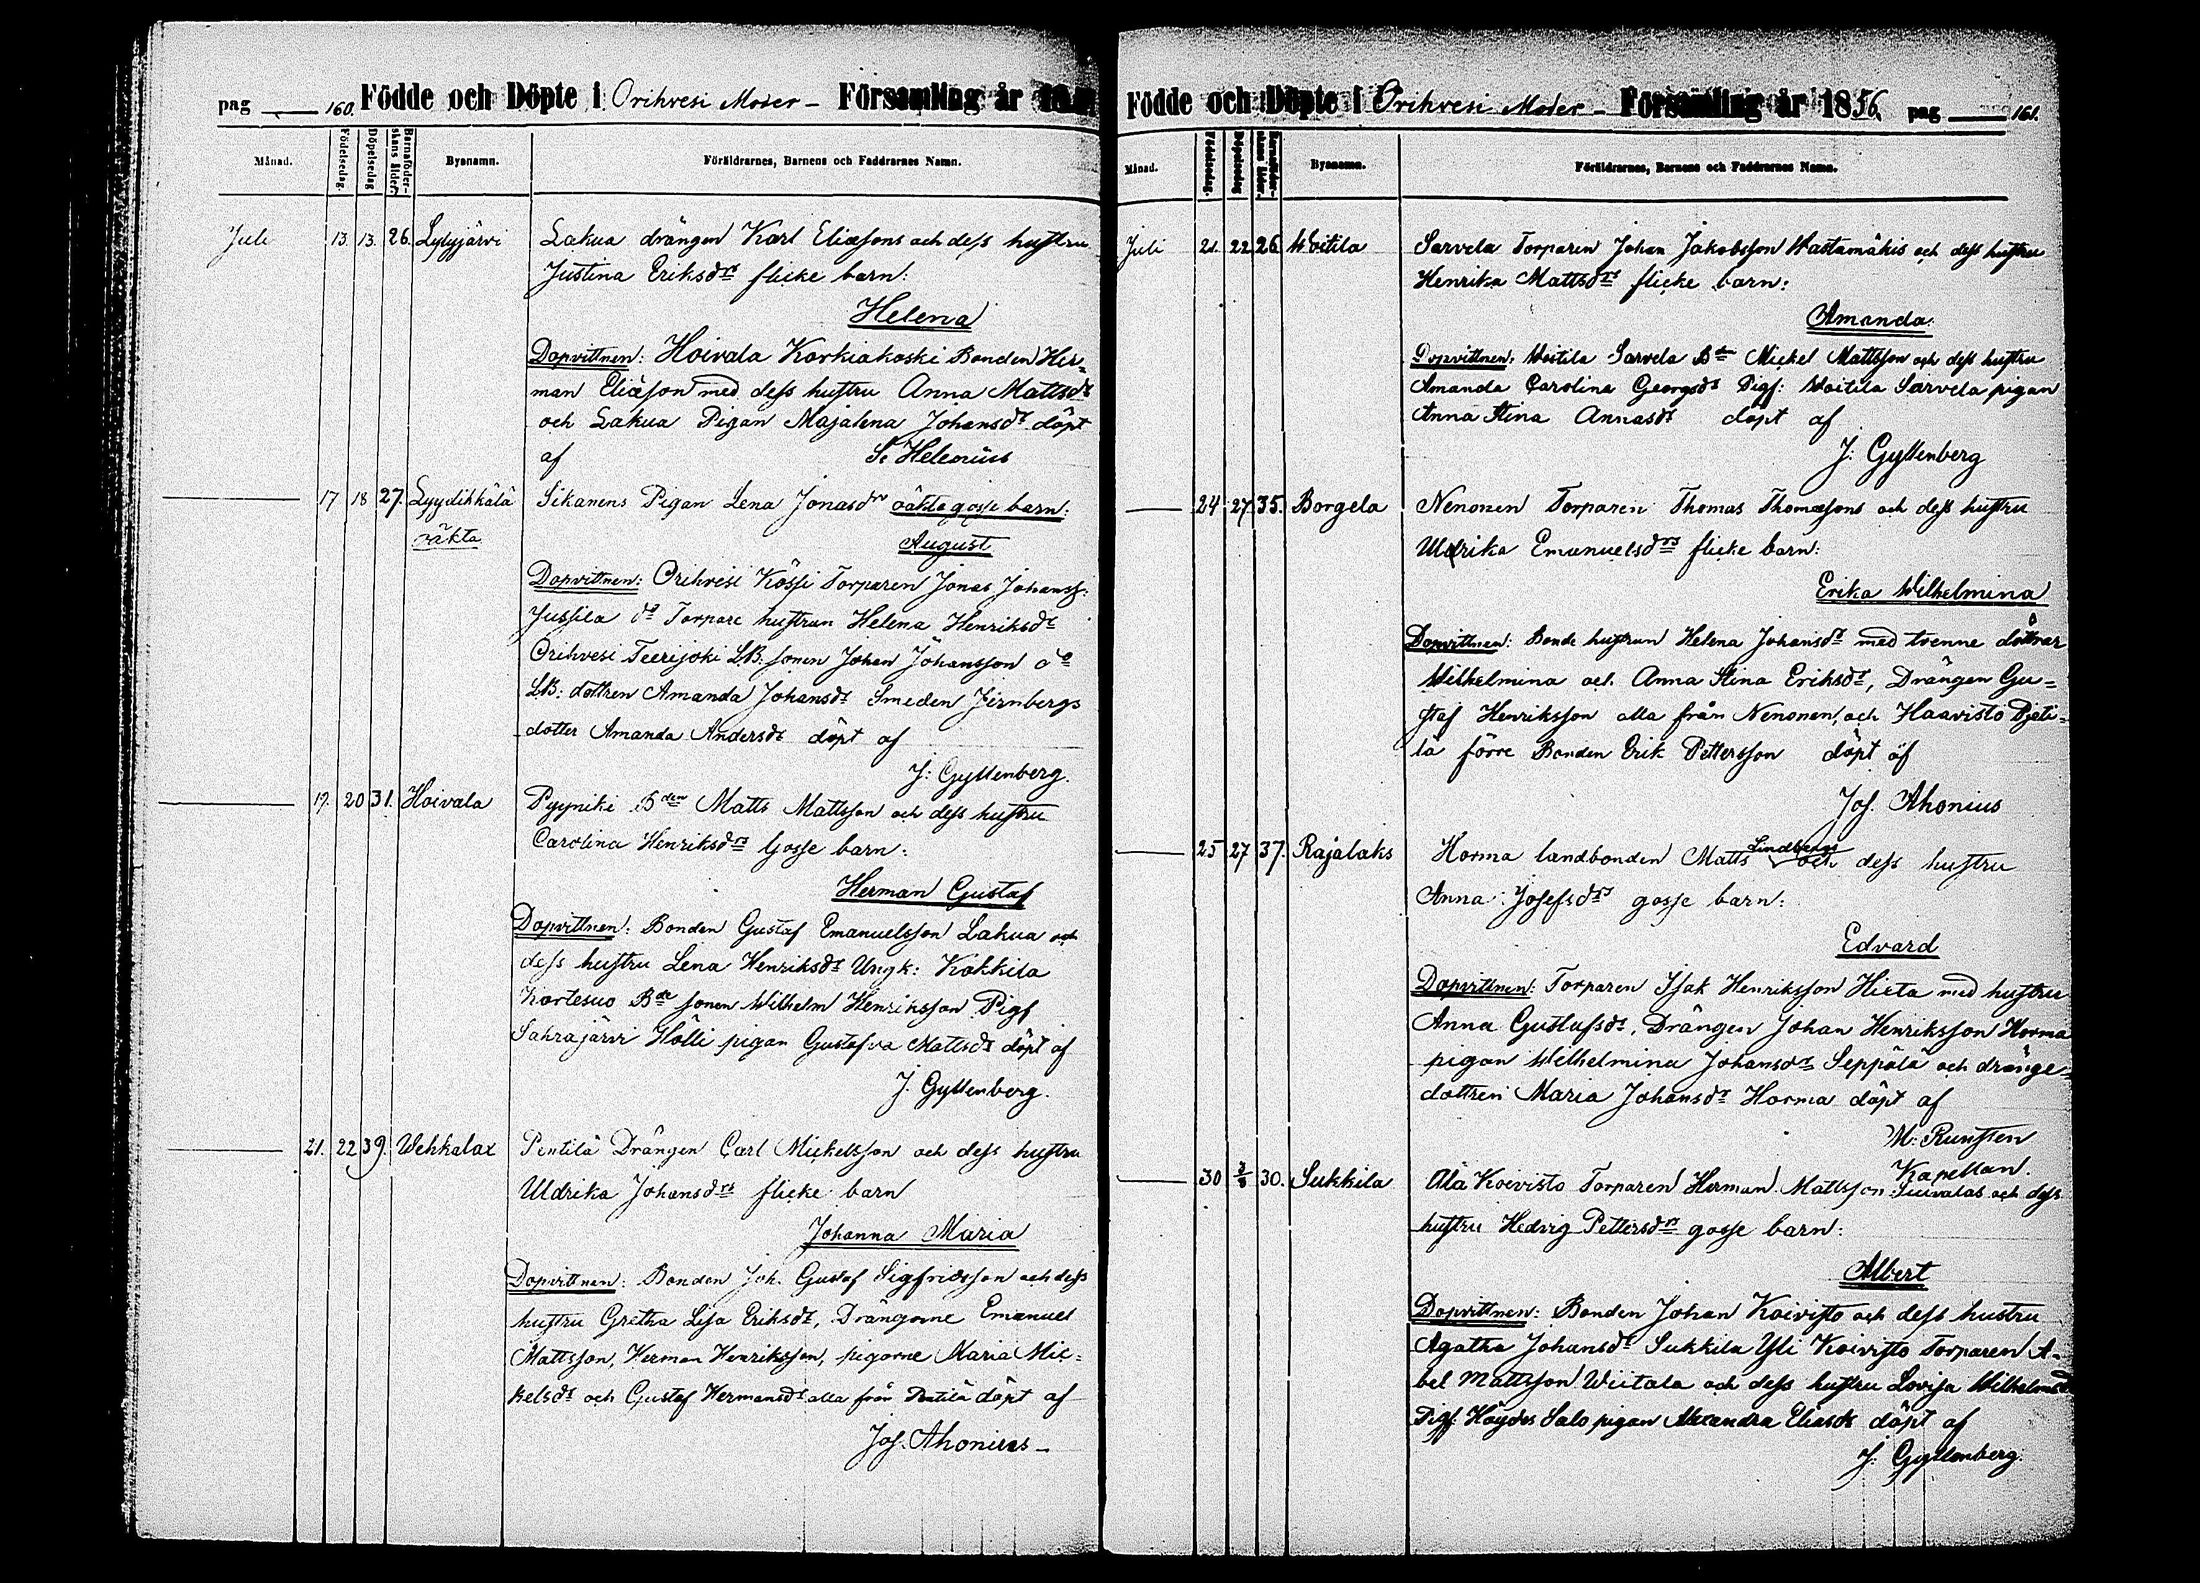 pag 160. Födde och Döpte i Orihvesi Moder - Församling år 18
Månad. Födelsedag. Döpelsedag Barnaföderskans ålder. Bysnamn. Föräldrarnes, Barnens och Faddrarnes Namn.
Juli 13. 13. 26. Lylyjärvi Lakua drängen Karl Eliæsons och dess hustru
Justina Eriksdrs flicke barn:
Helena
Dopvittnen: Hoivala Korkiakoski Bonden Her=
man Eliæson med dess hustru Anna Mattsdr
och Lakua Pigan Majalena Johansdr döpt
af S. Helenius
17 18 27. Lyydikkälä Sikanens Pigan Lena Jonasdrs oäkta gosse barn:
oäkta August
Dopvittnen: Orihvesi Kössi Torparen Jonas Johanss:
Jussila do Torpare hustrun Helena Henriksdr
Orihvesi Teerijoki LB: sonen Johan Johansson do
LB: dottren Amanda Johansdr Smeden Jernbergs
dotter Amanda Andersdr döpt af
J: Gyllenberg.
17. 20 31. Hoivala Pyyniki Bden Matts Mattsson och dess hustru
Carolina Henriksdrs Gosse barn:
Herman Gustaf
Dopvittnen: Bonden Gustaf Emanuelsson Lakua och
dess hustru Lena Henriksdr Ungk: Kokkila
Kortesuo Bde sonen Wilhelm Henriksson Pigf
Sahrajärvi Hölli pigan Gustafva Mattsdr döpt af
J. Gyllenberg.
21. 22 39. Wehkalax Pentilä Drängen Carl Mickelsson och dess hustru
Uldrika Johansdrs flicke barn
Johanna Maria
Dopvittnen: Bonden Joh. Gustaf Sigfridsson och dess
hustru Gretha Lisa Eriksdr, Drängarne Emanuel
Mattsson, Herman Henriksson, pigorne Maria Mic=
kelsdr och Gustaf Hermansdr alla från Pentilä döpt af
Jos. Ahonius -
Födde och Döpte i Orihvesi Moder - Församling år 1856. pag 161.
Månad. Födelsedag. Döpelsedag Barnaföderskans ålder. Bysnamn. Föräldrarnes, Barnens och Faddrarnes Namn.
Juli 21. 22 26. Woitila Sarvela Torparen Johan Jakobsson Wastamäkis och dess hustru
Henrika Mattsdrs flicke barn:
Amanda.
Dopvittnen: Woitila Sarvela Bden Mickel Mattsson och dess hustru
Amanda Carolina Georgsdr Pigf: Woitila Sarvela pigan
Anna Stina Annasdr döpt af
J: Gyllenberg
24 27 35. Borgela Nenonen Torparen Thomas Thomæsons och dess hustru
Uldrika Emanuelsdrs flicke barn:
Erika Wilhelmina
Dopvittnen: Bonde hustrun Helena Johansdr med tvenne döttrar
Wilhelmina och Anna Stina Eriksdr, Drängen Gu=
staf Henriksson alla från Nenonen, och Haavisto Pjeti=
lä förre Bonden Erik Pettersson döpt af
Jos. Ahonius
25 27 37. Rajalaks Horma landbonden Matts Lindbergs och dess hustru
Anna Josefsdrs gosse barn:
Edvard
Dopvittnen: Torparen Isak Henriksson Hieta med hustru
Anna Gustafsdr, Drängen Johan Henriksson Horma
pigan Wilhelmina Johansdr Seppälä och dränge=
dottren Maria Johansdr Horma döpt af
M: Runsten
Kapellan.
30 3/8 30. Sukkila Ala Koivisto Torparen Herman Mattsson och dess
hustru Hedvig Pettersdrs gosse barn:
Albert
Dopvittnen: Bonden Johan Koivisto och dess hustru
Agatha Johansdr Sukkila Yli Koivisto Torparen A-
bel Mattsson Wiitala och dess hustru Lovisa Wilhelmsdr
Pigf. Höydes Salo pigan Alexandra Eliasdr döpt af
J: Gyllenberg.